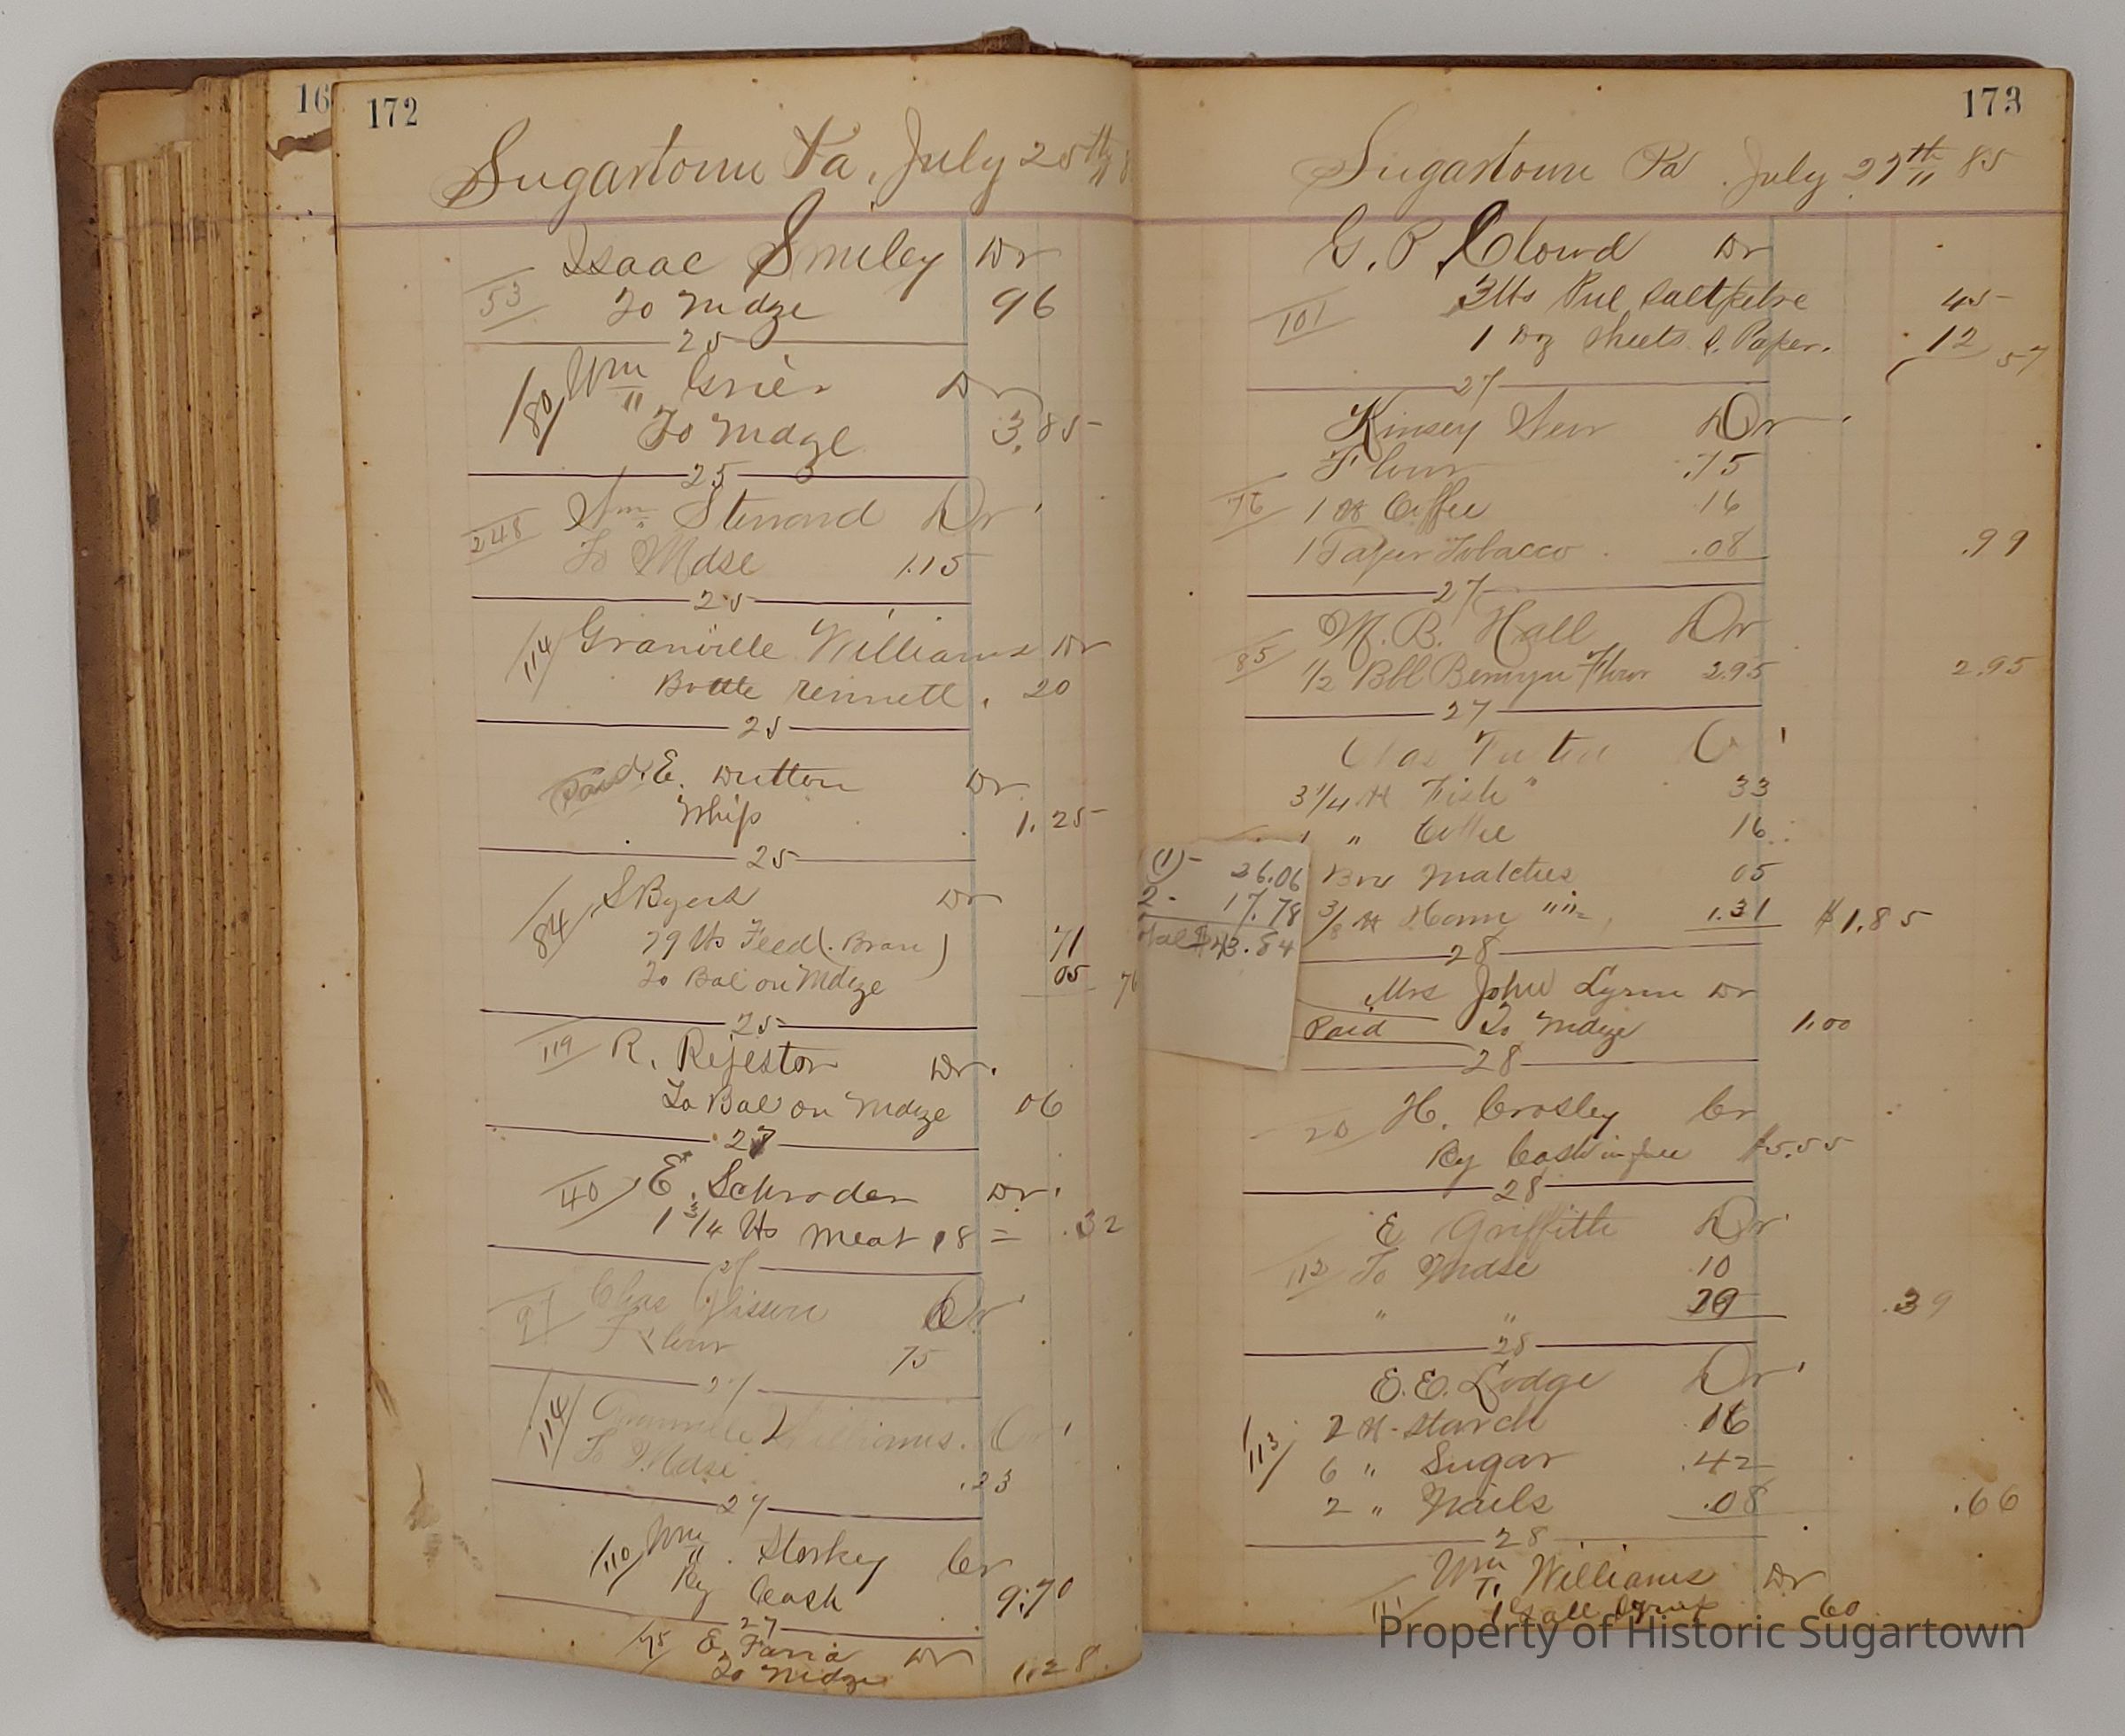 16
172
Sugartown Pa, July 25th
Isaac Smiley Dr
53 To Mdze 96
25
180 Wm Grier Dr
To Mdze 3.85
25
248 Wm Steward Dr
To Mdse 1.15
25
114 Granville Williams Dr
Bottle rennett. 20
25
Paid E. Dutton Dr
Whip 1.25
25
84 S Byers Dr
79 lbs Feed (Bran) 71
To Bal on Mdze 05 76
25
119 R. Rejestor Dr.
To Bal on Mdze 06
27
40 E. Schroder Dr.
1 3/4 lbs Meat 18 = .32
27
97 Chas Dr
Flour 75
27
114 Granville Williams. Dr
To Mdse .23
27
110 Wm. Storkey Cr
By Cash 9.70
27
75 E. Farra Dr
To Mdze 1.28
173
Sugartown Pa. July 27th 85
G. P. Cloud Dr
101 3 lbs Pul Saltpetre 45
1 Doz Sheets S. Paper. 12 57
27
Kinsey Dr
Flour .75
76 1 lb Coffee 16
1 Paper Tobacco .08 .99
27
M. B. Hall Dr
85 1/2 Bbl Berwyn Flour 2.95 2.95
27
3 1/4 lb Fish 33
1 " Coffee 16
Box Matches 05
lb Ham 1.31 $1.85
(1)- 26.06
2- 17.78
Total $43.84
28
Mrs John Lynn Dr
Paid To Mdze 1.00
28
20 H. Crosley Cr
By Cash in full $5.55
28
E Griffith Dr
112 To Mdse 10
" " 29 .39
28
E. E. Lodge Dr
113 2 lb starch .16
6 " Sugar .42
2 " Nails .08 .66
28
Wm T. Williams Dr
111 1 Gall Syrup 60
Property of Historic Sugartown